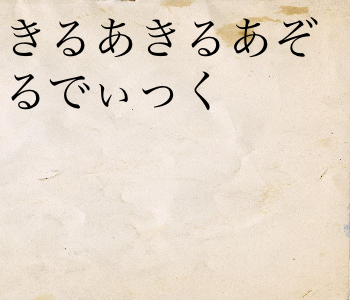 きるあきるあぞ
るでぃっく